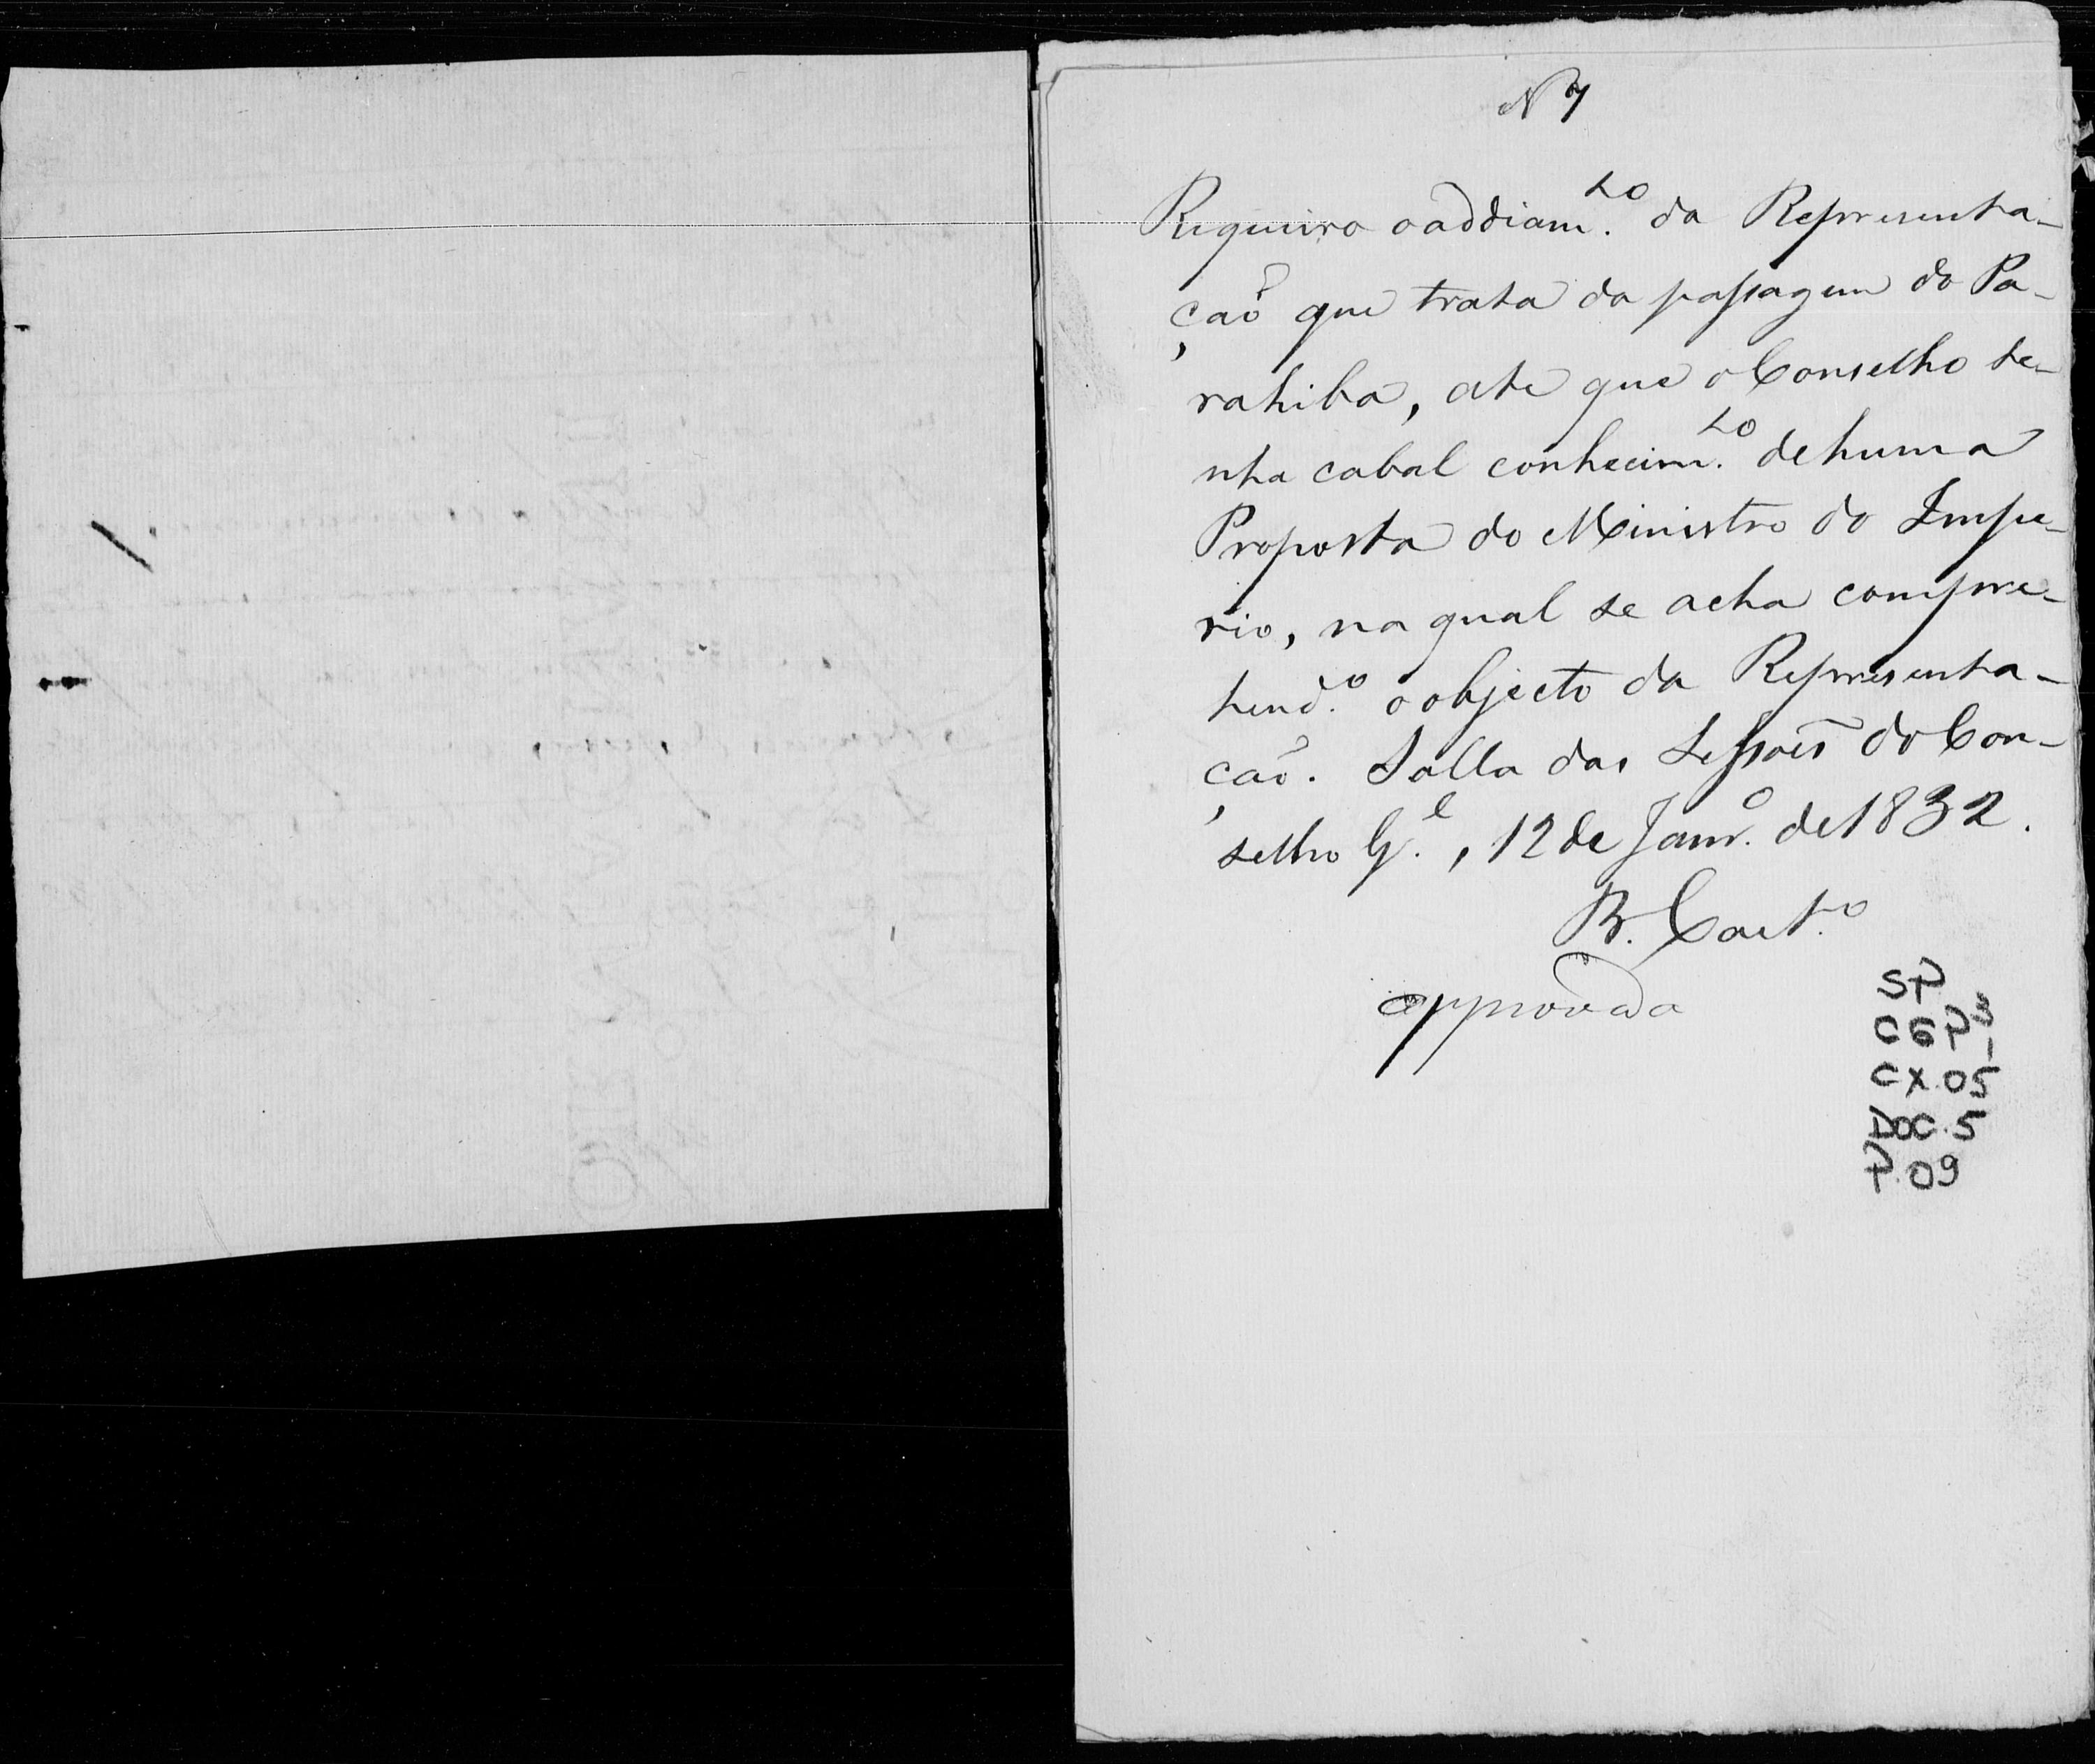 N 7
Requeiro o addiam.to da Representa-
çaõ que trata da passagem do Pa-
rahiba, ate que o Conselho te-
nha cabal conhecim.to de huma
Proposta do Ministro do Impe-
rio, na qual se acha compre-
hend.o o objecto da Representa-
çaõ. Salla das Sessoẽs do Con-
selho G.l, 12 de Janr.o de 1832.
R. Caet.o
approvada
SP
CGP3
CX.05
DOC.5
P.09